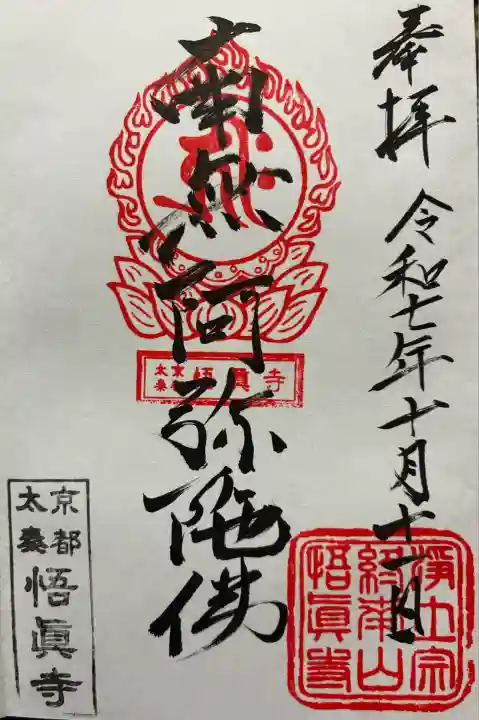 奉拝 令和七年十月十一日
南無阿弥陀佛
太秦 京 悟眞寺
浄土宗
終南山
悟眞寺
京都
太秦
悟眞寺